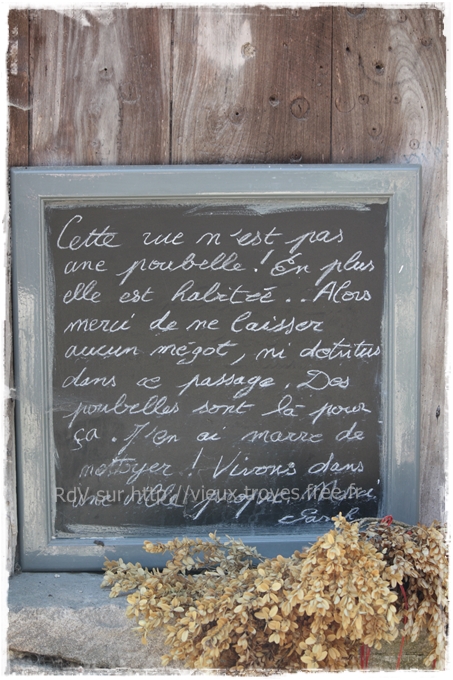 Cette rue n'est pas
une poubelle ! En plus
elle est habitée .. Alors
merci de ne laisser
aucun mégot, ni detritus
dans ce passage. Des
poubelles sont là pour
ça. J'en ai marre de
nettoyer ! Vivons dans
Rdv sur http://vieux.troyes.free.fr
une ville propre. Merci
Sarah